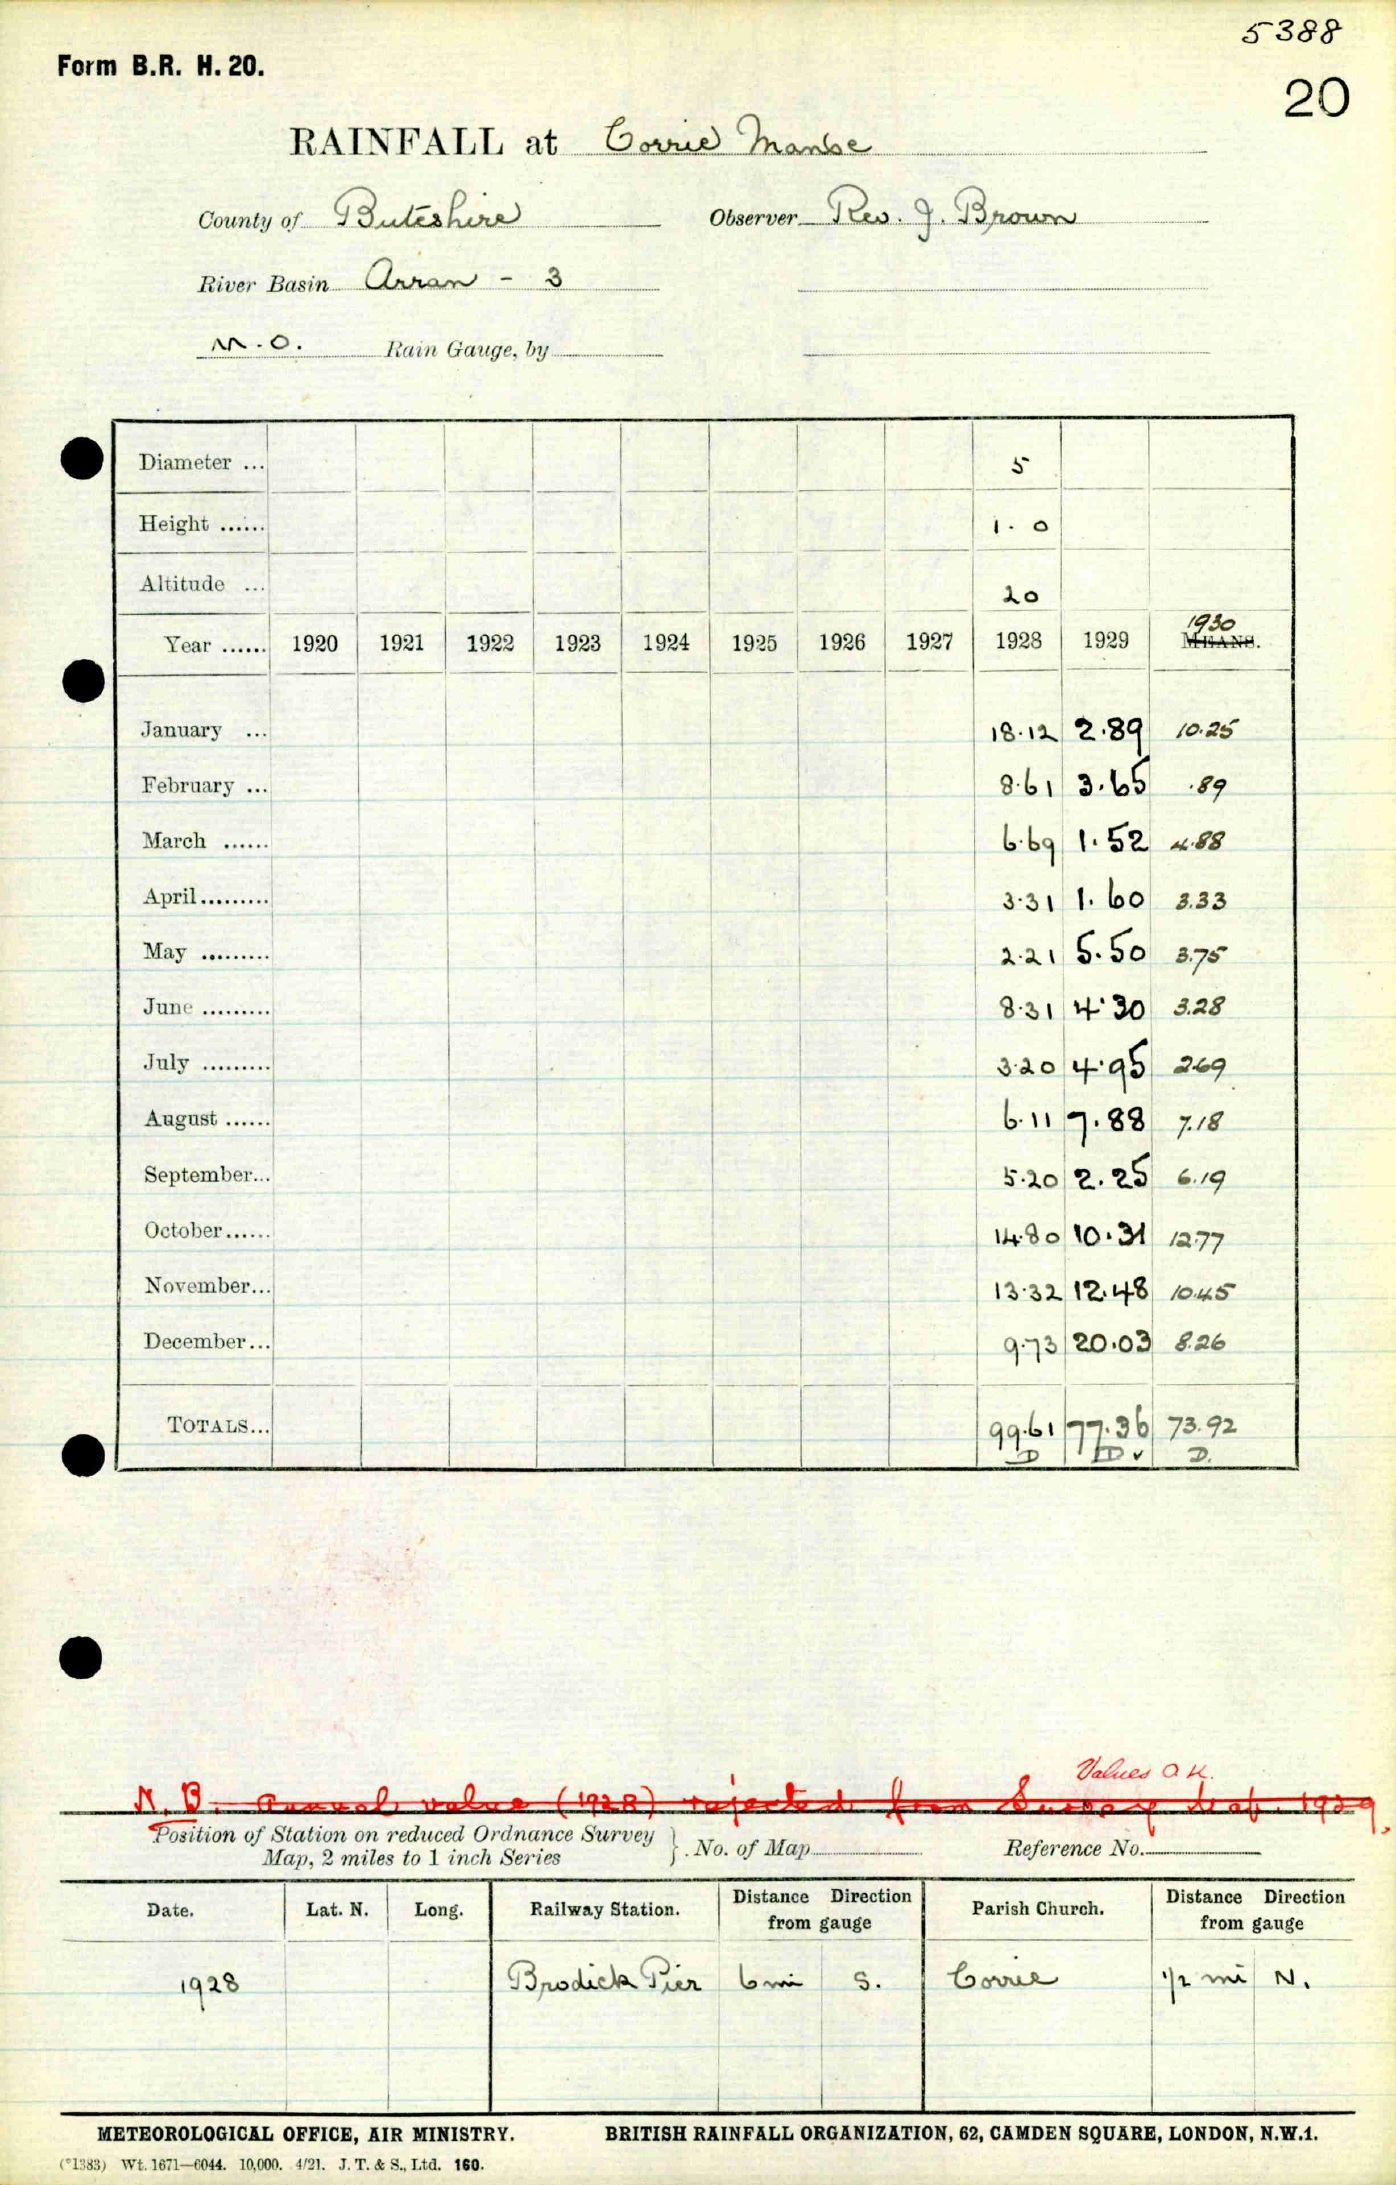 5388
Form B.R. H. 20.
20
RAINFALL at Corrie Manse
County of Buteshire Observer Rev. J. Brown
River Basin Arran - 3
M.O. Rain Gauge, by
Diameter ... 5
Height ...... 1. 0
Altitude ... 20
Year ...... 1920 1921 1922 1923 1924 1925 1926 1927 1928 1929 1930 MEANS.
January ... 18.12 2.89 10.25
February ... 8.61 3.65 .89
March ...... 6.69 1.52 4.88
April......... 3.31 1.60 3.33
May ......... 2.21 5.50 3.75
June ......... 8.31 4.30 3.28
July ......... 3.20 4.95 2.69
August ...... 6.11 7.88 7.18
September... 5.20 2.25 6.19
October...... 14.80 10.31 12.77
November... 13.32 12.48 10.45
December... 9.73 20.03 8.26
TOTALS... 99.61 77.36 73.92
D D ✓ D.
Values O.K.
N.B. Annual value (1928) rejected from Survey Map. 1929.
Position of Station on reduced Ordnance Survey
Map, 2 miles to 1 inch Series } . No. of Map Reference No.
Date. Lat. N. Long. Railway Station. Distance Direction from gauge Parish Church. Distance Direction from gauge
1928 Brodick Pier 6 mi S. Corrie 1/2 mi N.
METEOROLOGICAL OFFICE, AIR MINISTRY. BRITISH RAINFALL ORGANIZATION, 62, CAMDEN SQUARE, LONDON, N.W.1.
(*1383) Wt. 1671—6044. 10,000. 4/21. J. T. & S., Ltd. 160.